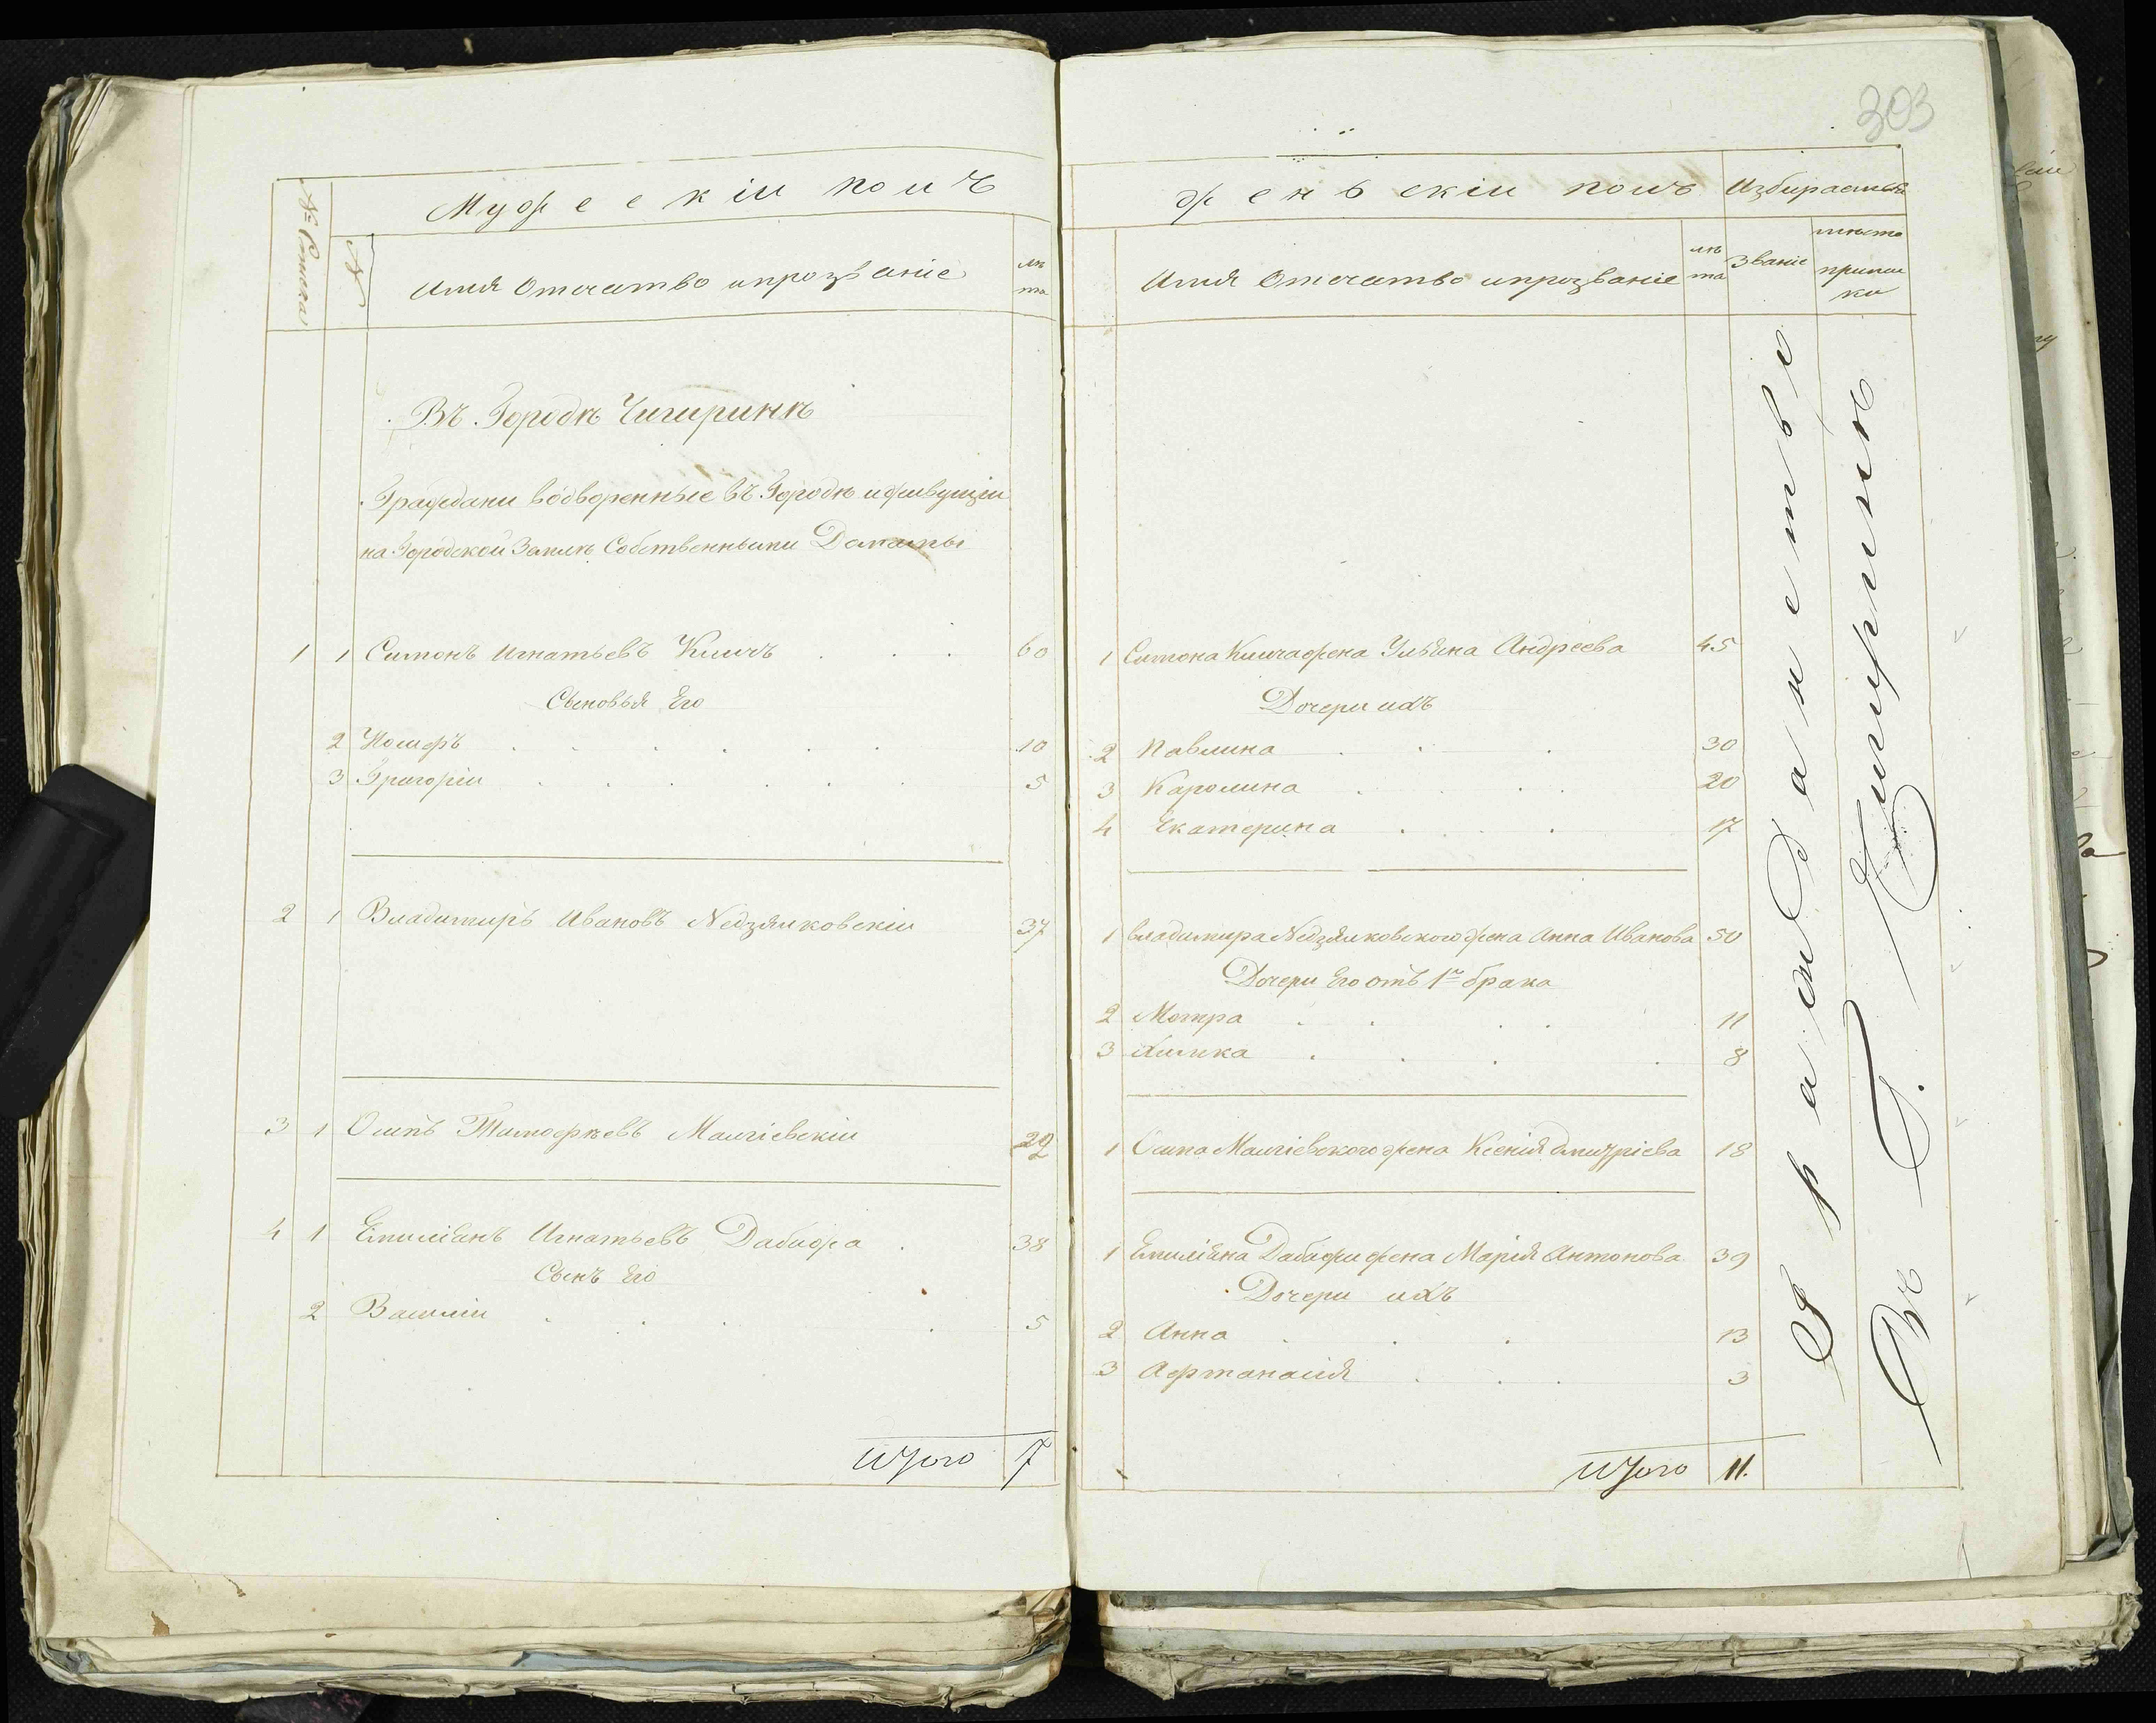 303
Мужескій полъ
№ Списка
№
Имя Отечество и прозваніе
лѣ
та
Въ Городѣ Чигиринѣ
Граждани водворенные въ Городѣ и живущіи
на Городской Землѣ Собственными Домамы
1 1 Симонъ Игнатьевъ Климъ 60
Сыновья Его
2 10
3 Григоріи 5
2 1 Владимиръ Ивановъ Nедзялковскіи 37
3 1 Осипъ Тимофѣевъ 22
4 1 Емиліянъ Игнатьевъ Дабижа 38
Сынъ Его
2 Василіи 5
Итого 7
Женьскіи полъ
Избираемыя
Имя Отечество и прозваніе
лѣ
та
Званіе
мѣста
припис
ки
1 Симона жена Ульяна Андреева 45
Дочери ихъ
2 Павлина 30
3 Каролина 20
4 Екатерина 17
1 Владимира Nедзялковского жена Анна Иванова 50
Дочери Его отъ 1го брака
2 Мотра 11
3 Химка 8
1 Осипа жена Ксенія Дмитріева 18
1 Емиліяна Дабижи жена Марія Антонова 39
Дочери ихъ
2 Анна 13
3 Афтанасія 3
Итого 11.
Гражданство
Въ Г. Чигиринѣ